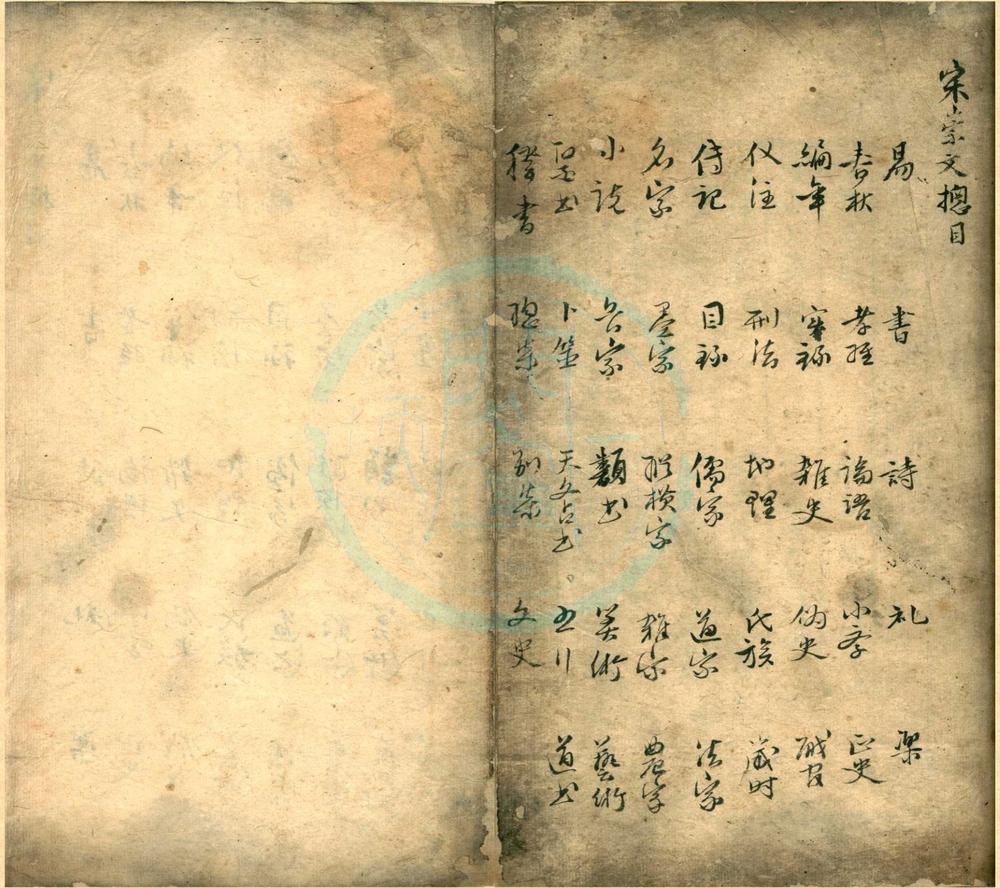 宋崇文摠目
易 書 詩 礼 楽
春秋 孝經 論語 小学 正史
編年 實録 雜史 偽史 職官
仪注 刑法 地理 氏族 歲时
傳記 目録 儒家 道家 法家
名家 墨家 縱横家 雜家 農家
小説 兵家 類書 筭術 藝術
医书 卜筮 天文占书 五行 道书
釋書 總集 别集 文史